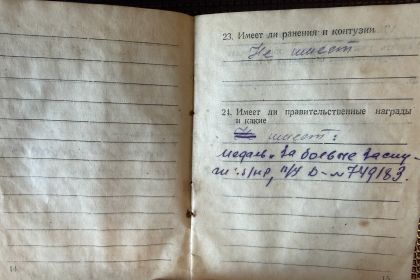 23. Имеет ли ранения и контузии
Не имеет
24. Имеет ли правительственные награды
и какие
имеет:
медаль „За боевые заслу-
ги"
№ 749183.
14
15